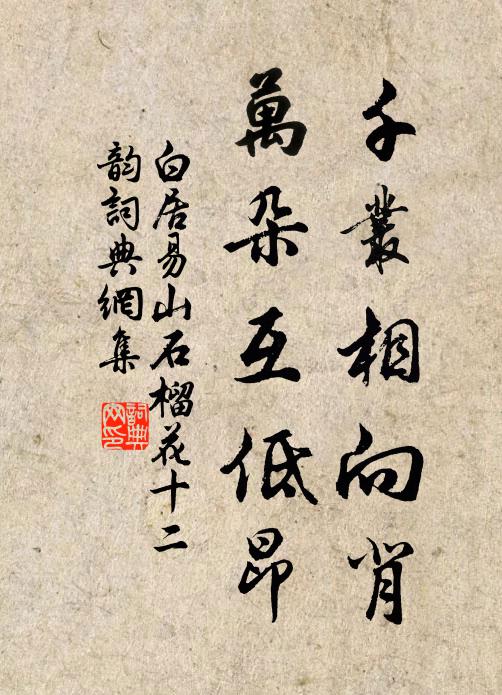 千叢相向背
萬朵互低昂
白居易山石榴花十二
韵詞典網集
詞典网印